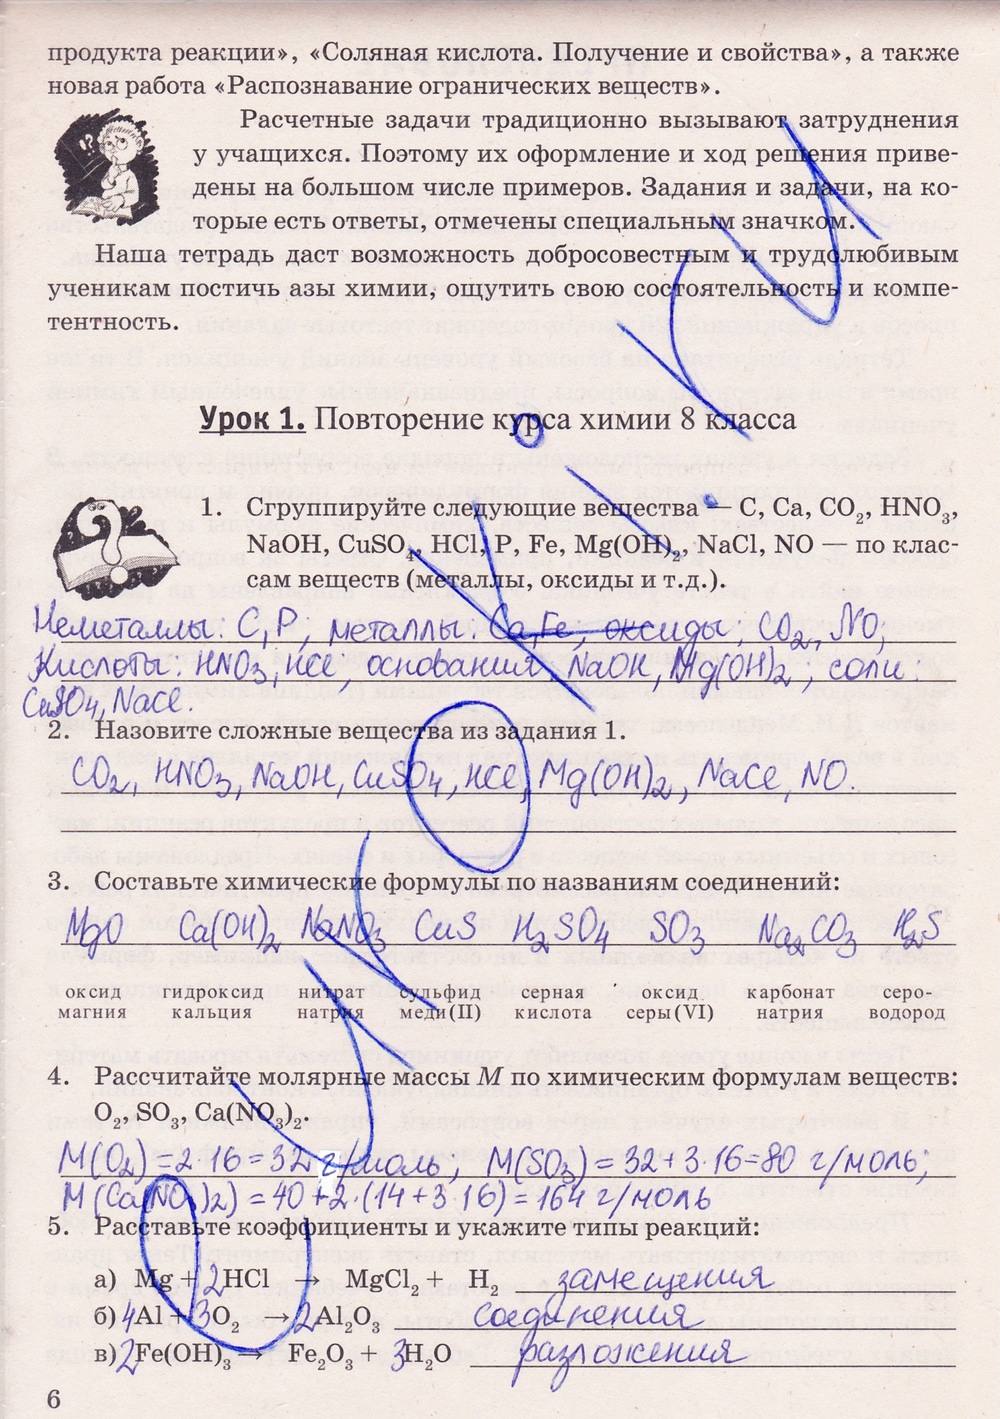 продукта реакции», «Соляная кислота. Получение и свойства», а также
новая работа «Распознавание огранических веществ».
Расчетные задачи традиционно вызывают затруднения
у учащихся. Поэтому их оформление и ход решения приве-
дены на большом числе примеров. Задания и задачи, на ко-
торые есть ответы, отмечены специальным значком.
Наша тетрадь даст возможность добросовестным и трудолюбивым
ученикам постичь азы химии, ощутить свою состоятельность и компе-
тентность.
Урок 1. Повторение курса химии 8 класса
1. Сгруппируйте следующие вещества — C, Ca, CO₂, HNO₃,
NaOH, CuSO₄, HCl, P, Fe, Mg(OH)₂, NaCl, NO — по клас-
сам веществ (металлы, оксиды и т.д.).
Неметаллы: C, P, металлы: Ca, Fe, оксиды: CO₂, NO,
Кислоты: HNO₃, HCl, основания: NaOH, Mg(OH)₂, соли:
CuSO₄, NaCl.
2. Назовите сложные вещества из задания 1.
CO₂, HNO₃, NaOH, CuSO₄, HCl, Mg(OH)₂, NaCl, NO.
3. Составьте химические формулы по названиям соединений:
MgO Ca(OH)₂ NaNO₃ CuS H₂SO₄ SO₃ Na₂CO₃ H₂S
оксид гидроксид нитрат сульфид серная оксид карбонат серо-
магния кальция натрия меди(II) кислота серы(VI) натрия водород
4. Рассчитайте молярные массы M по химическим формулам веществ:
O₂, SO₃, Ca(NO₃)₂.
M(O₂) = 2·16 = 32 г/моль; M(SO₃) = 32+3·16=80 г/моль;
M(Ca(NO₃)₂) = 40+2·(14+3·16) = 164 г/моль
5. Расставьте коэффициенты и укажите типы реакций:
а) Mg + 2HCl → MgCl₂ + H₂ замещения
б) 4Al + 3O₂ → 2Al₂O₃ соединения
в) 2Fe(OH)₃ → Fe₂O₃ + 3H₂O разложения
6